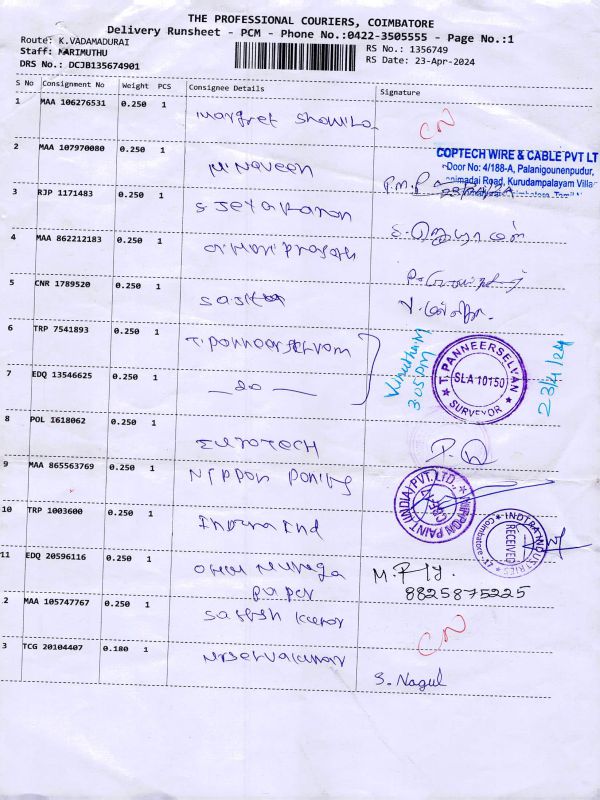 THE PROFESSIONAL COURIERS, COIMBATORE
Delivery Runsheet - PCM - Phone No.:0422-3505555 - Page No.:1
Route: K.VADAMADURAI
Staff: MARIMUTHU
DRS No.: DCJB135674901
RS No.: 1356749
RS Date: 23-Apr-2024
S No Consignment No Weight PCS Consignee Details Signature
1 MAA 106276531 0.250 1 Margret CN
2 MAA 107970080 0.250 1 M. Naveen
COPTECH WIRE & CABLE PVT LT
Door No: 4/188-A, Palanigounenpudur,
Road, Kurudampalayam Villa
3 RJP 1171483 0.250 1 S Jeyakaran
4 MAA 862212183 0.250 1 Hari prasath
5 CNR 1789520 0.250 1
6 TRP 7541893 0.250 1 T. Panneerselvam
Vinothini
3.05PM
T. PANNEERSELVAN
SLA 10150
SURVEYOR
23/4/24
7 EDQ 13546625 0.250 1 — do —
8 POL 1618062 0.250 1 EUROTECH
9 MAA 865563769 0.250 1 NIPPON
NIPPON PAINT (INDIA) PVT. LTD.
10 TRP 1003600 0.250 1 Indira Ind
INDIRA INDUSTRIES
RECEIVED
Coimbatore-17
11 EDQ 20596116 0.250 1 Muruga
paper
8825875225
2 MAA 105747767 0.250 1 Satish CN
3 TCG 20104407 0.180 1 S. Nagul